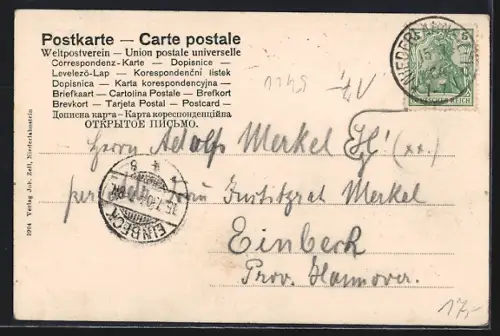 Postkarte — Carte postale
Weltpostverein — Union postale universelle
Correspondenz-Karte — Dopisnice
Levelező-Lap — Korespondenční listek
Dopisnica — Karta korespondencyjna
Briefkaart — Cartolina Postale — Brefkort
Brevkort — Tarjeta Postal — Postcard
Дописна карта — Карта кореспонденційна
ОТКРЫТОЕ ПИСЬМО.
5
REICH
Herrn Adolf Merkel
Justizrat Merkel
Einbeck
Prov. Hannover.
EINBECK
1904 Verlag Joh. Zell, Niederlahnstein
17,-